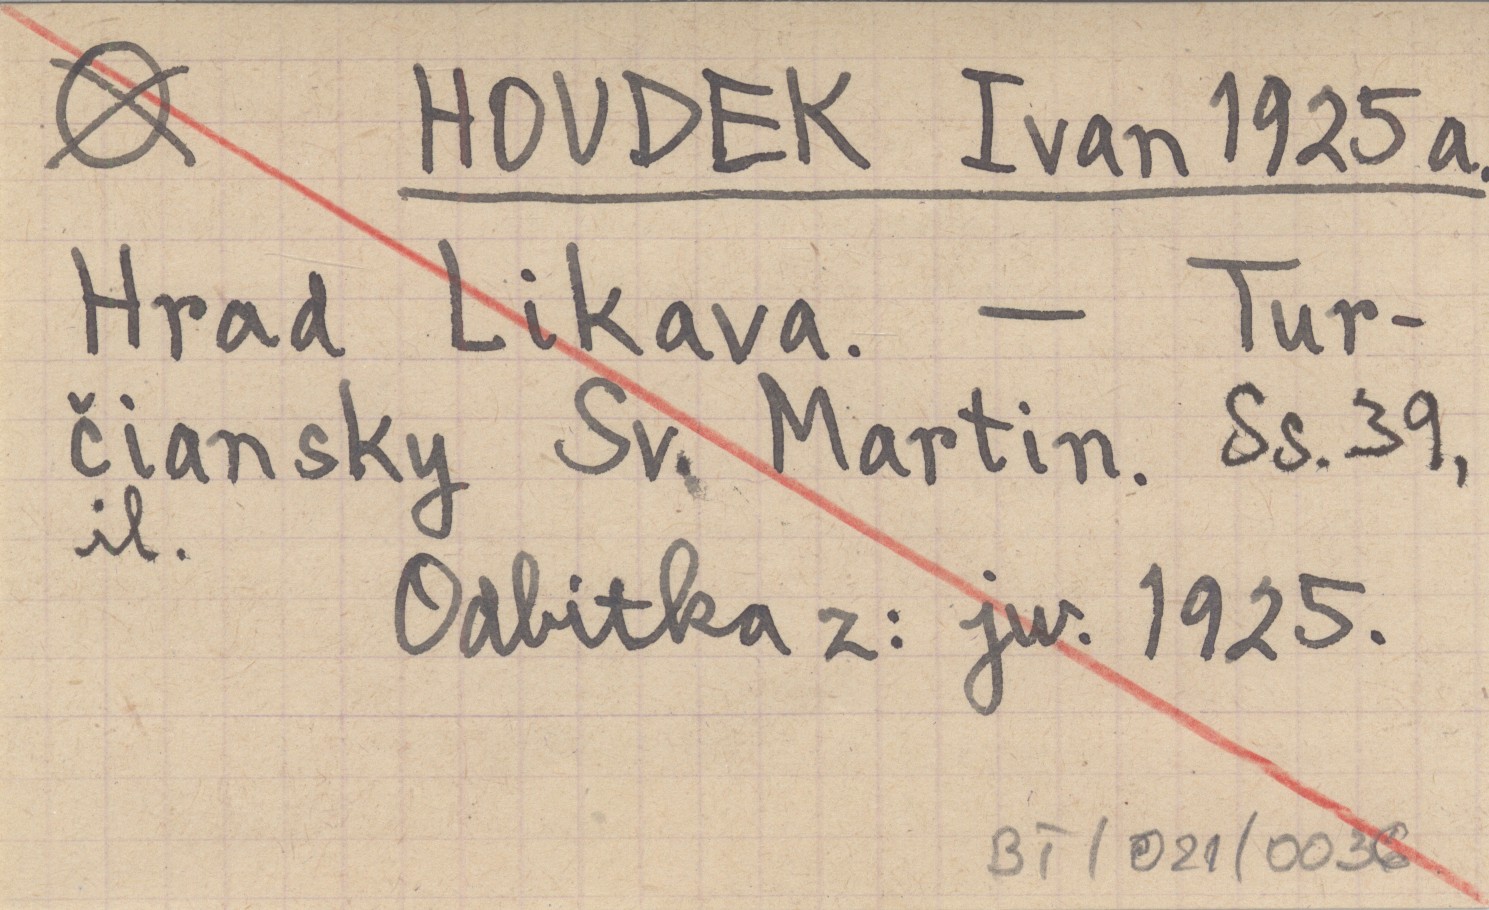 HOUDEK Ivan 1925 a.
Hrad Likava. — Tur-
čiansky Sv. Martin. Ss. 39,
il.
Odbitka z: jw. 1925.
BT / 021 / 0036